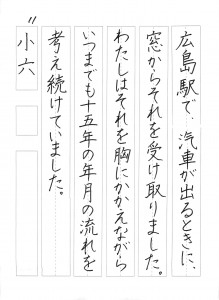 広島駅で、汽車が出るときに、
窓からそれを受け取りました。
わたしはそれを胸にかかえながら
いつまでも十五年の年月の流れを
考え続けていました。
小六